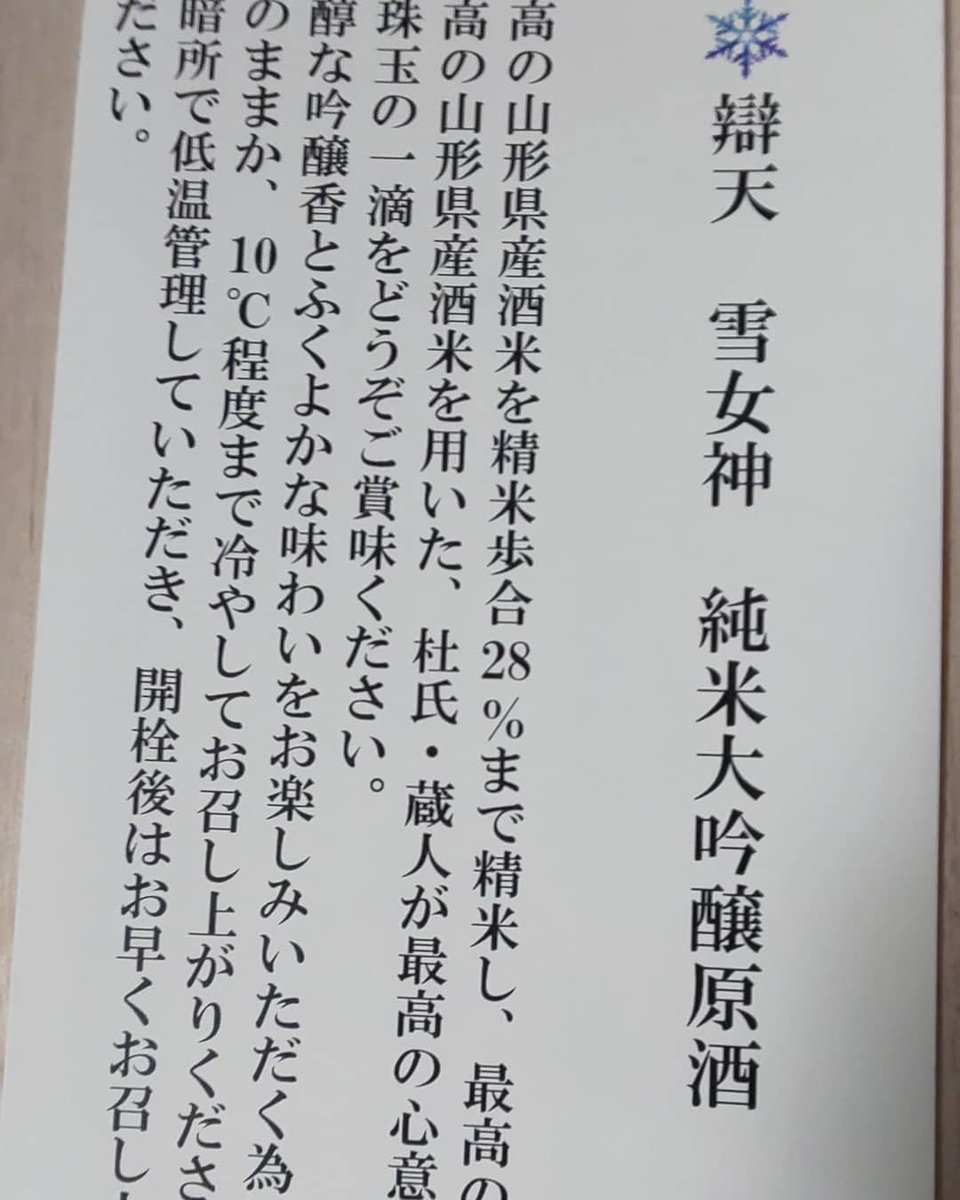 辯天 雪女神 純米大吟醸原酒
高の山形県産酒米を精米歩合28%まで精米し、最高の
高の山形県産酒米を用いた、杜氏・蔵人が最高の心意
珠玉の一滴をどうぞご賞味ください。
醇な吟醸香とふくよかな味わいをお楽しみいただく為
のままか、10℃程度まで冷やしてお召し上がりくださ
暗所で低温管理していただき、開栓後はお早くお召し
ださい。